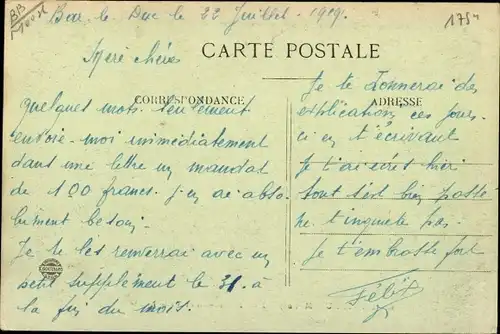 Bar le Duc le 22 Juillet - 1919.
175
CARTE POSTALE
Mère chère
CORRESPONDANCE
ADRESSE
quelques mots seulement
envoie-moi immédiatement
dans une lettre un mandat
de 100 francs. j'en ai abso-
lument besoin.
Je te les renverrai avec un
petit supplément le 31. à
la fin du mois.
Je te donnerai des
explications ces jours-
ci en t'écrivant
Je t'ai écris hier
tout s'est bien passé
ne t'inquiete pas
Je t'embrasse fort
Félix